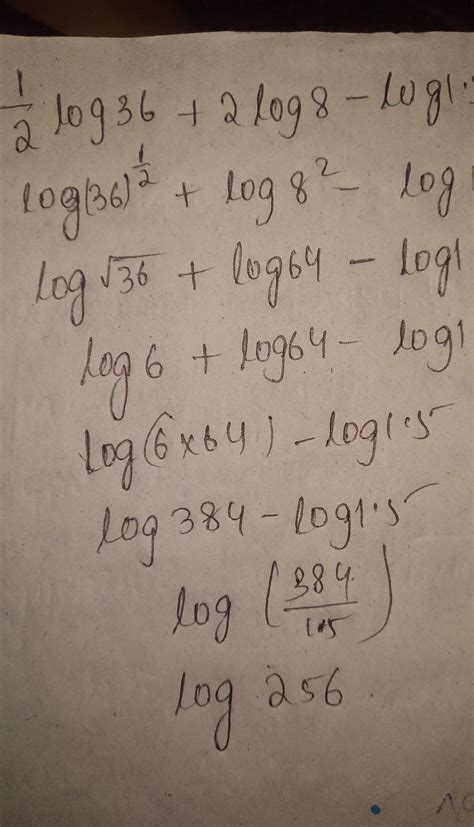 1/2 log 36 + 2 log 8 − log 1.
log(36)^1/2 + log 8² − log
log √36 + log 64 − log 1
log 6 + log 64 − log 1
log(6×64) − log 1.5
log 384 − log 1.5
log (384/1.5)
log 256